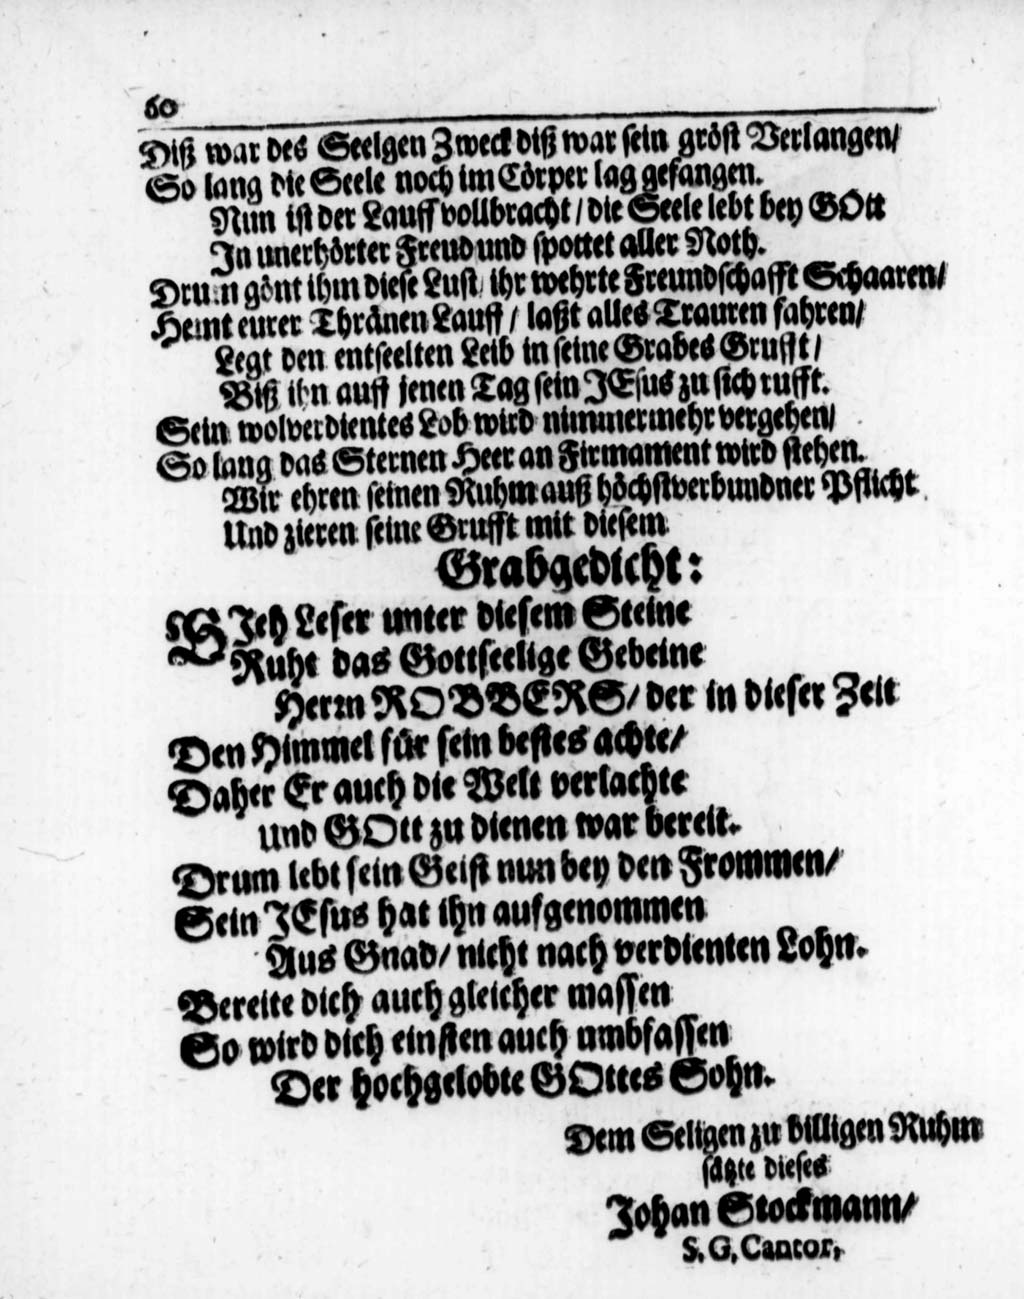 60
Diß war des Seelgen Zweck diß war sein gröst Verlangen/
So lang die Seele noch im Cörper lag gefangen.
Nun ist der Lauff vollbracht / die Seele lebt bey GOtt
In unerhörter Freud und spottet aller Noth.
Drum gönt ihm diese Lust/ ihr wehrte Freundschafft Schaaren/
Hemt eurer Thränen Lauff / laßt alles Trauren fahren/
Legt den entseelten Leib in seine Grabes Grufft /
Biß ihn auff jenen Tag sein JEsus zu sich rufft.
Sein wolverdientes Lob wird nimmermehr vergehen/
So lang das Sternen Heer an Firmament wird stehen.
Wir ehren seinen Ruhm auß höchstverbundner Pflicht
Und zieren seine Grufft mit diesem
Grabgedicht:
SIeh Leser unter diesem Steine
Ruht das Gottseelige Gebeine
Herrn ROBBERS/ der in dieser Zeit
Den Himmel für sein bestes achte/
Daher Er auch die Welt verlachte
und GOtt zu dienen war bereit.
Drum lebt sein Geist nun bey den Frommen/
Sein JEsus hat ihn aufgenommen
Aus Gnad/ nicht nach verdienten Lohn.
Bereite dich auch gleicher massen
So wird dich einsten auch umbfassen
Der hochgelobte GOttes Sohn.
Dem Seligen zu billigen Ruhm
satzte dieses
Johan Stockmann/
S. G. Cantor,